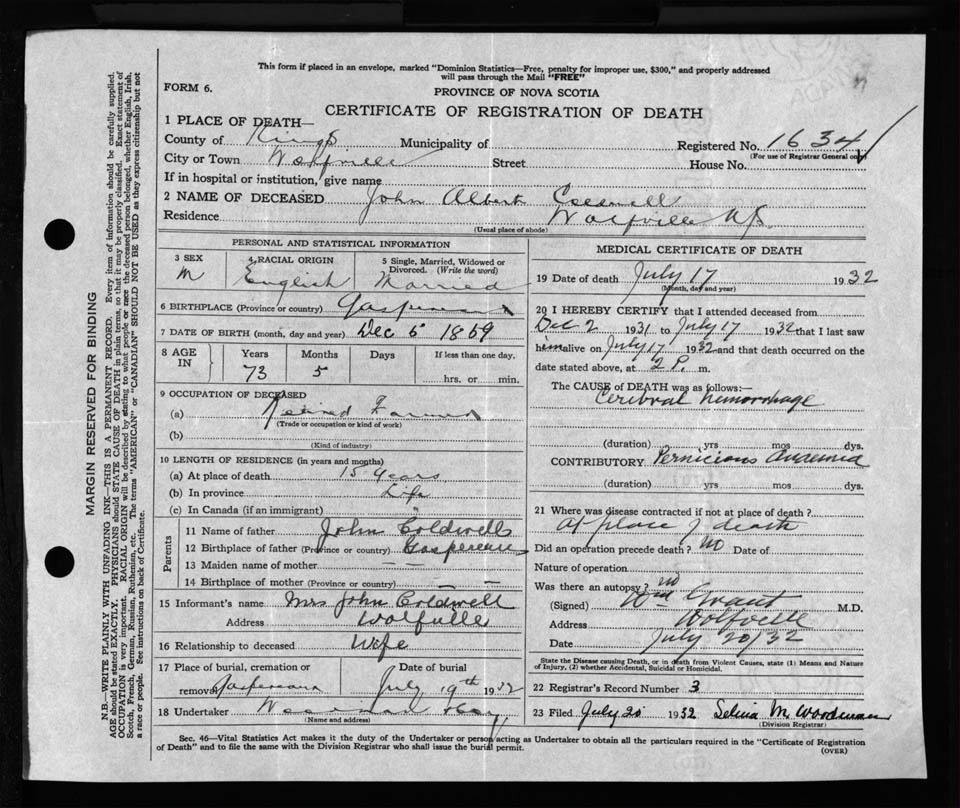 This form if placed in an envelope, marked "Dominion Statistics—Free, penalty for improper use, $300," and properly addressed
will pass through the Mail "FREE"
FORM 6.
PROVINCE OF NOVA SCOTIA
CERTIFICATE OF REGISTRATION OF DEATH
1 PLACE OF DEATH—
County of Kings Municipality of Registered No. 1634
(For use of Registrar General only)
City or Town Wolfville Street House No.
If in hospital or institution, give name
2 NAME OF DECEASED John Albert Coldwell
Residence Wolfville N.S.
(Usual place of abode)
PERSONAL AND STATISTICAL INFORMATION
3 SEX 4 RACIAL ORIGIN 5 Single, Married, Widowed or
Divorced. (Write the word)
M English Married
6 BIRTHPLACE (Province or country) Gaspereau
7 DATE OF BIRTH (month, day and year) Dec 5 1859
8 AGE IN Years Months Days If less than one day,
73 5 hrs. or min.
9 OCCUPATION OF DECEASED
(a) Retired Farmer
(Trade or occupation or kind of work)
(b)
(Kind of industry)
10 LENGTH OF RESIDENCE (in years and months)
(a) At place of death 15 years
(b) In province Life
(c) In Canada (if an immigrant) "
Parents
11 Name of father John Coldwell
12 Birthplace of father (Province or country) Gaspereau
13 Maiden name of mother — —
14 Birthplace of mother (Province or country) — —
15 Informant's name Mrs John Coldwell
Address Wolfville
16 Relationship to deceased Wife
17 Place of burial, cremation or Date of burial
removal Gaspereau July 19th 1932
18 Undertaker
(Name and address)
MEDICAL CERTIFICATE OF DEATH
19 Date of death July 17 1932
(Month, day and year)
20 I HEREBY CERTIFY that I attended deceased from
Dec 2 1931 to July 17 1932 that I last saw
him alive on July 17 1932 and that death occurred on the
date stated above, at 2 P. m.
The CAUSE of DEATH was as follows:—
Cerebral hemorrhage
(duration) yrs mos dys.
CONTRIBUTORY Pernicious Anaemia
(duration) yrs mos dys.
21 Where was disease contracted if not at place of death?
At place of death
Did an operation precede death? no Date of
Nature of operation
Was there an autopsy? no
(Signed) Wm Grant M.D.
Address Wolfville
Date July 20/32
State the Disease causing Death, or in death from Violent Causes, state (1) Means and Nature
of Injury, (2) whether Accidental, Suicidal or Homicidal.
22 Registrar's Record Number 3
23 Filed July 20 1932 Selina M. Woodman
(Division Registrar)
Sec. 46—Vital Statistics Act makes it the duty of the Undertaker or person acting as Undertaker to obtain all the particulars required in the "Certificate of Registration
of Death" and to file the same with the Division Registrar who shall issue the burial permit.
(OVER)
MARGIN RESERVED FOR BINDING
N.B.—WRITE PLAINLY WITH UNFADING INK—THIS IS A PERMANENT RECORD. Every item of information should be carefully supplied.
AGE should be stated EXACTLY. PHYSICIANS should STATE CAUSE OF DEATH in plain terms, so that it may be properly classified. Exact statement of
OCCUPATION is very important. RACIAL ORIGIN will be described by stating to what people or race the deceased person belonged, whether English, Irish,
Scotch, French, German, Russian, Ruthenian, etc. The terms "AMERICAN" or "CANADIAN" SHOULD NOT BE USED as they express citizenship but not
a race or people. See instructions on back of Certificate.